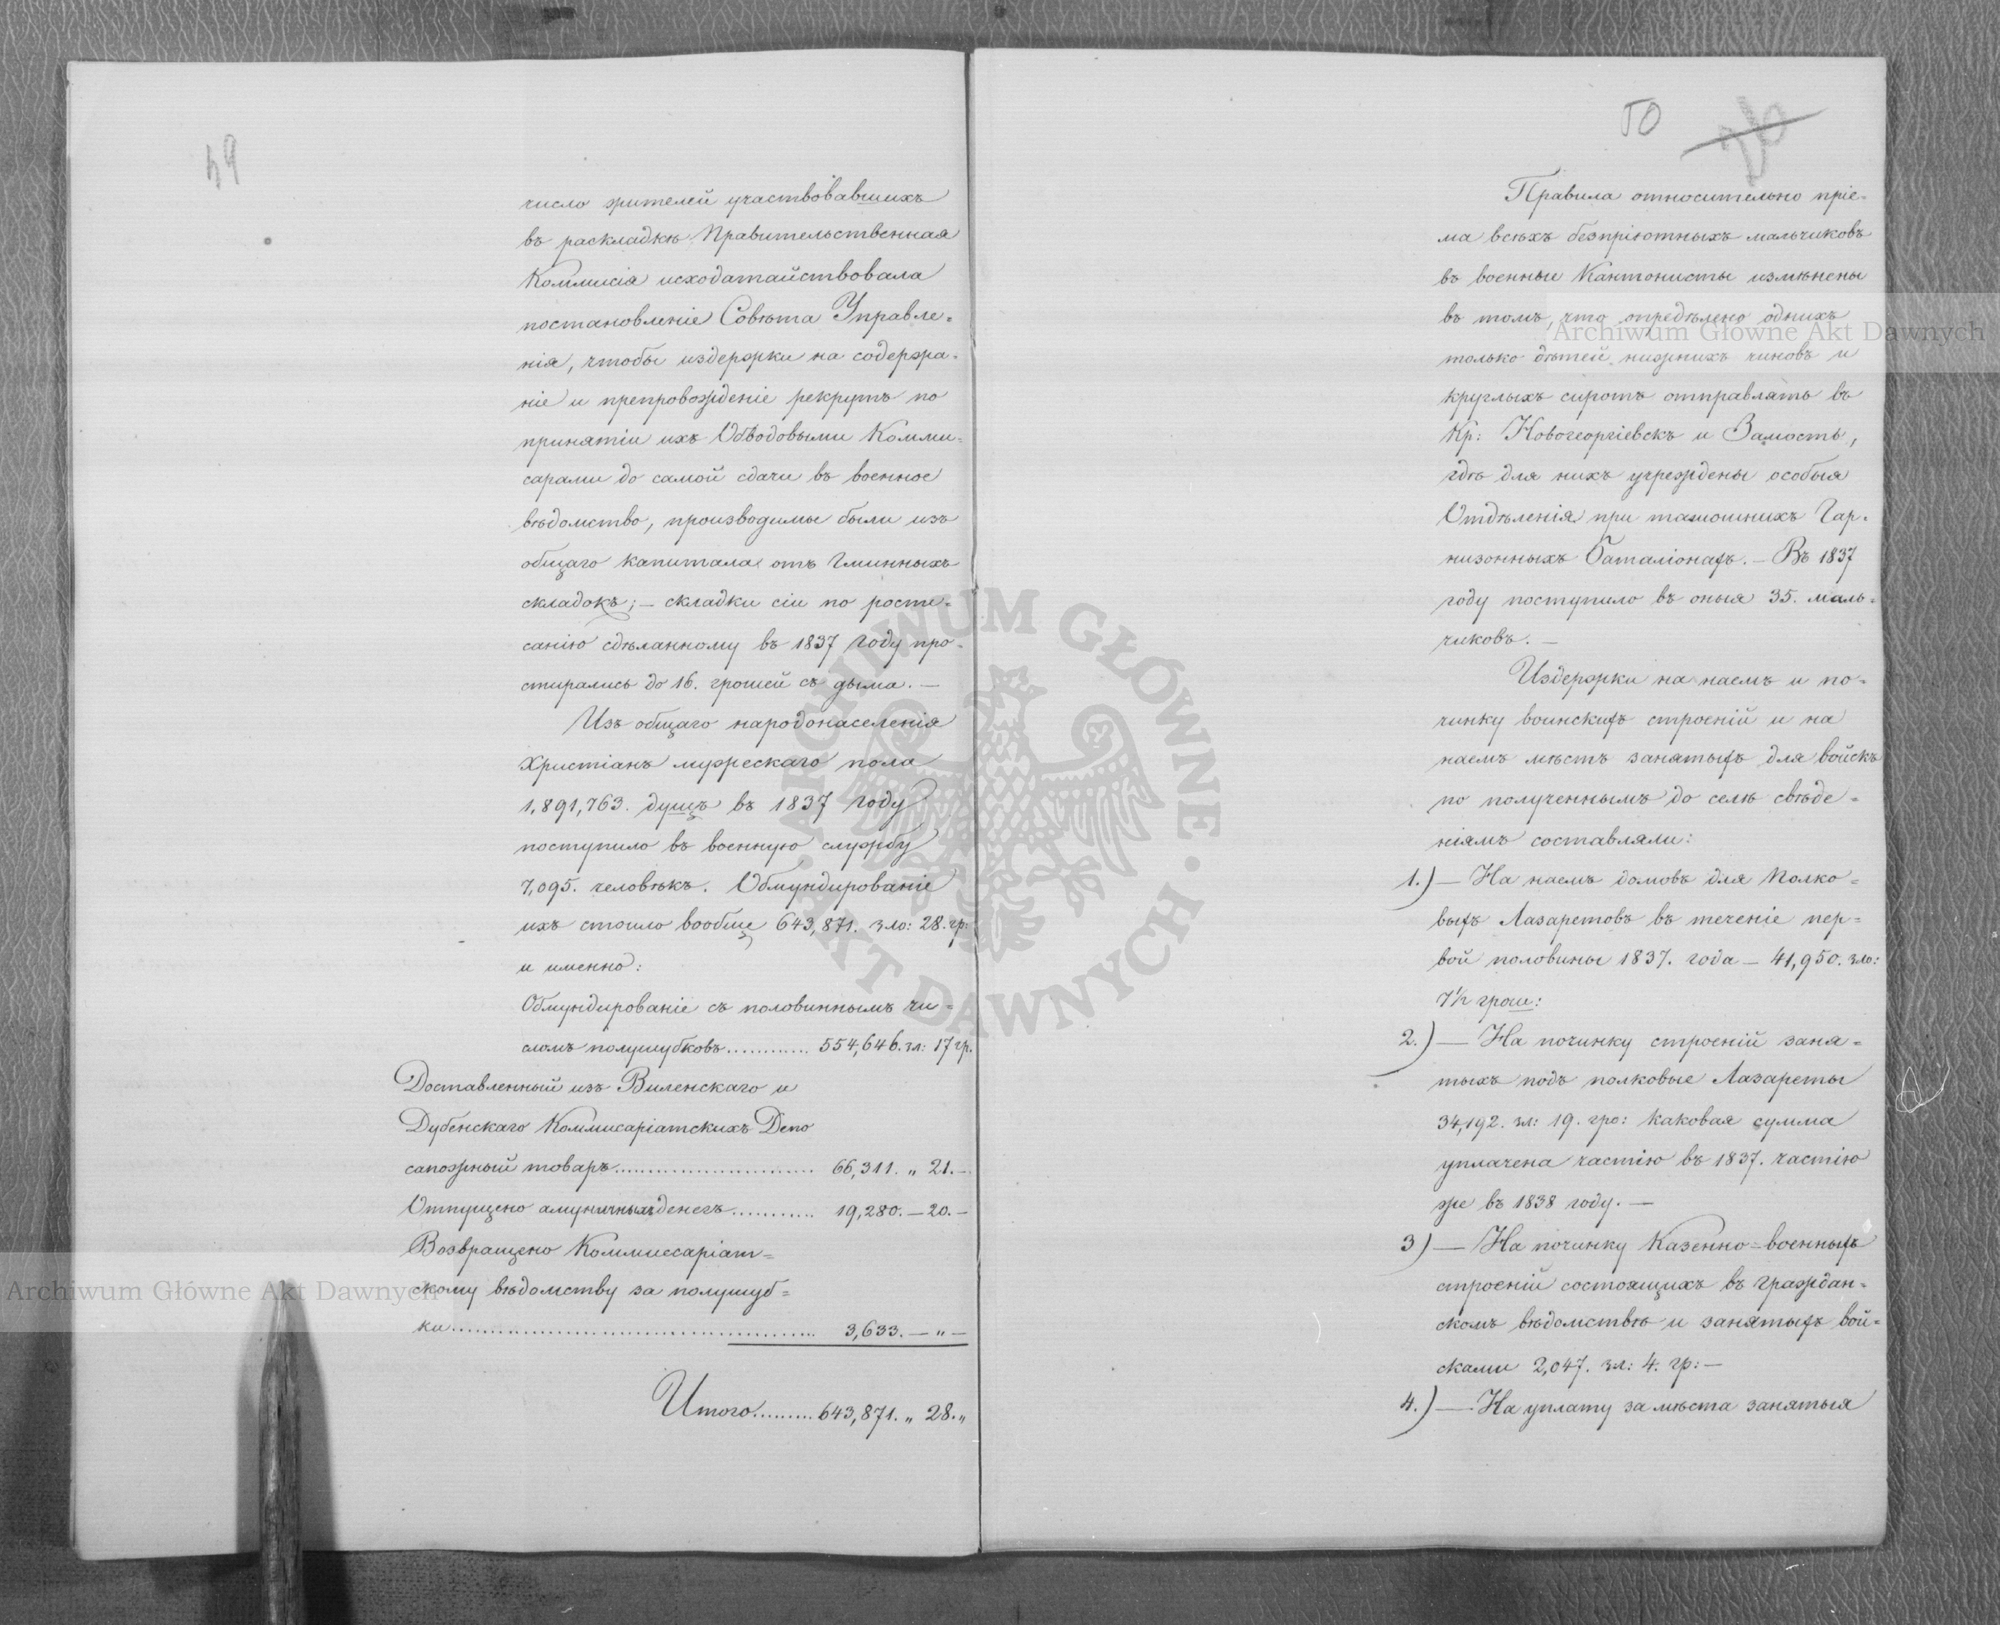 49
число жителей участвовавшихъ
въ раскладкѣ Правительственная
Коммисія исходатайствовала
постановленіе Совѣта Управле=
нія, чтобы издержки на содержа=
ніе и препровожденіе рекрутъ по
принятіи ихъ Обводовыми Комми=
сарами до самой сдачи въ военное
вѣдомство, производимы были изъ
общаго капитала отъ Гминныхъ
складокъ; — складки сіи по роспи=
санію сдѣланному въ 1837 году про=
стирались до 16. грошей съ дыма. —
Изъ общаго народонаселенія
Христіанъ мужескаго пола
1,891,763. душъ въ 1837 году
поступило въ военную службу
7,095. человѣкъ. Обмундированіе
ихъ стоило вообще 643,871. зло: 28. гр:
и именно:
Обмундированіе съ половиннымъ чи=
сломъ полушубковъ ............ 554,646. зл: 17 гр.
Доставленный изъ Виленскаго и
Дубенскаго Коммисаріатскихъ Депо
сапожный товаръ ............ 66,311. „ 21. —
Отпущено амуничныхъ денегъ ............ 19,280. — 20. —
Возвращено Коммиссаріат=
скому вѣдомству за полушуб=
ки ............ 3,633. — „ —
Итого ......... 643,871. „ 28. „
50
Правила относительно пріе=
ма всѣхъ безпріютныхъ мальчиковъ
въ военные Кантонисты измѣнены
въ томъ, что опредѣлено однихъ
только дѣтей нижнихъ чиновъ и
круглыхъ сиротъ отправлять въ
Кр: Новогеоргіевскъ и Замость,
гдѣ для нихъ учреждены особыя
Отдѣленія при тамошнихъ Гар=
низонныхъ Баталіонахъ. — Въ 1837
году поступило въ оныя 35. маль=
чиковъ. —
Издержки на наемъ и по=
чинку воинскихъ строеній и на
наемъ мѣстъ занятыхъ для войскъ
по полученнымъ до селѣ свѣде=
ніямъ составляли:
1.) — На наемъ домовъ для Полко=
выхъ Лазаретовъ въ теченіе пер=
вой половины 1837. года — 41,950. зло:
7½ грош:
2.) — На починку строеній заня=
тыхъ подъ полковые Лазареты
34,192. зл: 19. гро: каковая сумма
уплачена частію въ 1837. частію
же въ 1838 году. —
3) — На починку Казенно=военныхъ
строеній состоящихъ въ граждан=
скомъ вѣдомствѣ и занятыхъ вой=
сками 2,047. зл: 4. гр: —
4.) — На уплату за мѣста занятыя
Archiwum Główne Akt Dawnych
Archiwum Główne Akt Dawnych
ARCHIWUM GŁÓWNE · AKT DAWNYCH ·